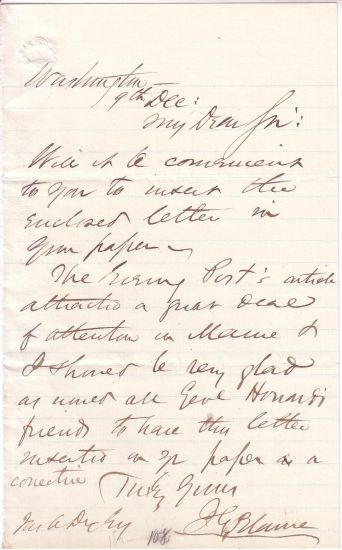 Washington
9th Dec:
My Dear Sir:
Will it be convenient
to you to insert the
enclosed letter in
your paper –
The Evening Post's article
attracted a great deal
of attention in Maine &
I should be very glad
as would all Genl Howard's
friends to have this letter
inserted in yr paper as a
corrective
Truly Yours
J G Blaine
Jas A
108